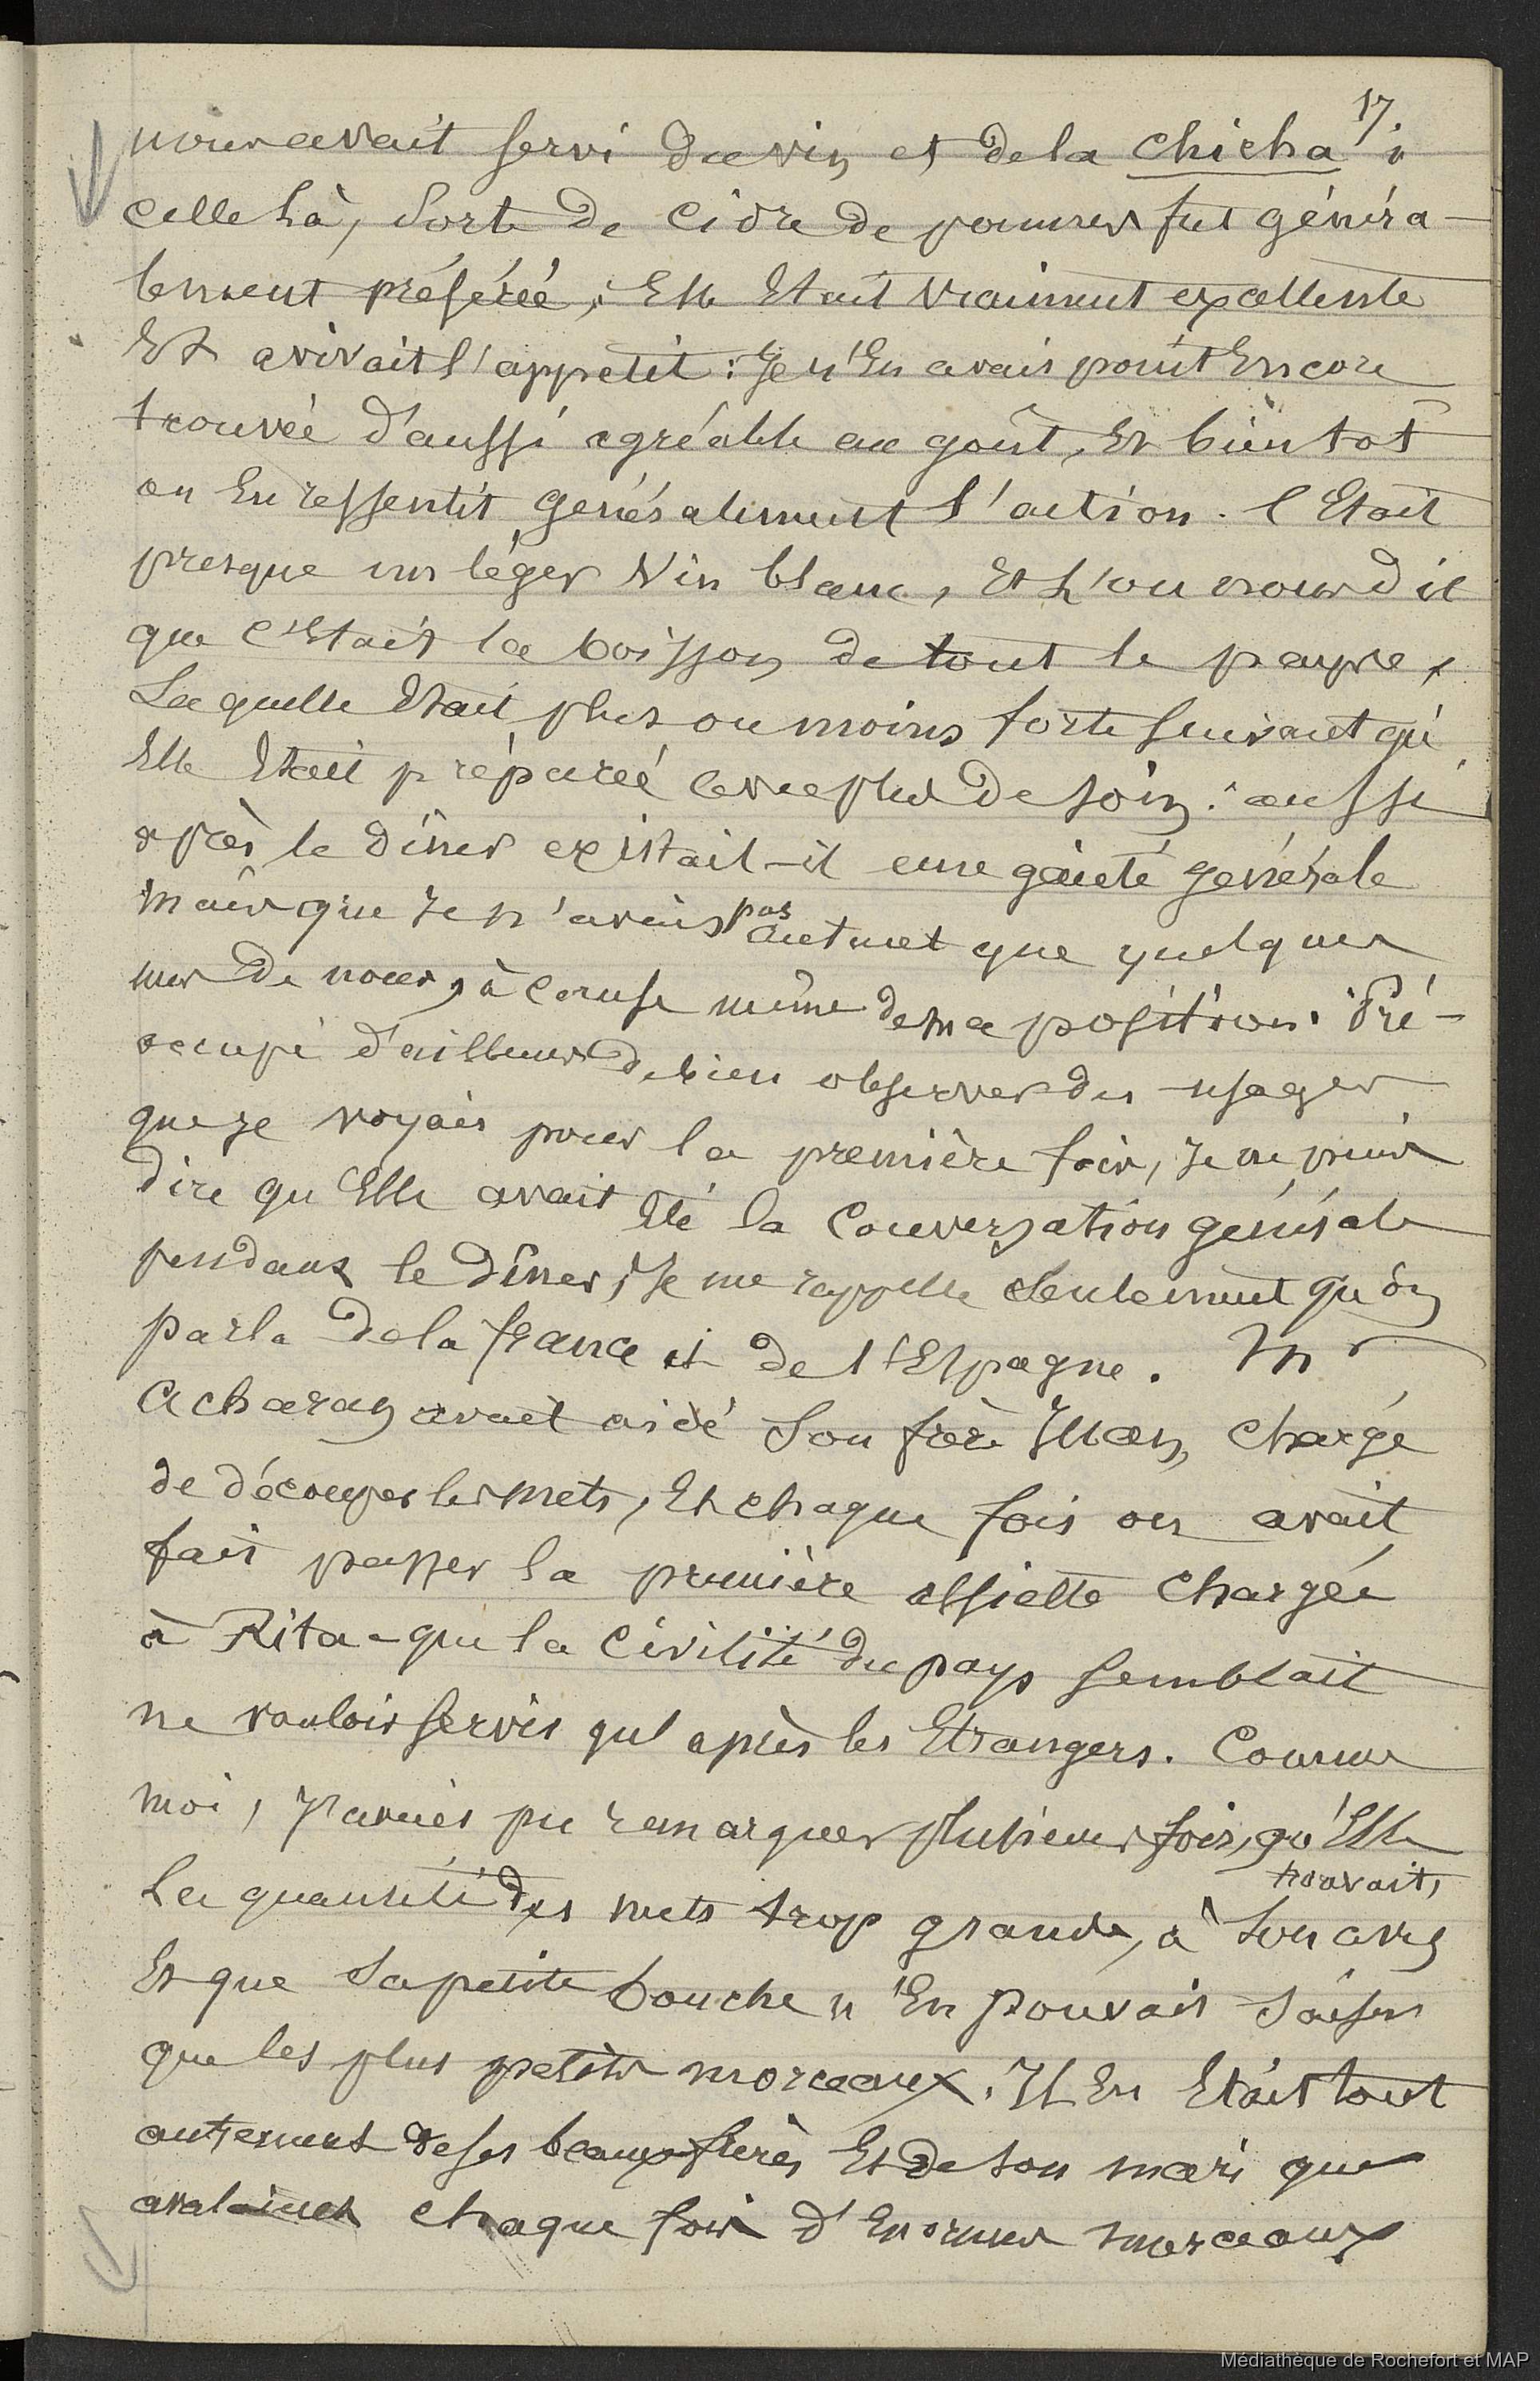 17.
nous avait servi du vin et de la chicha ;
celle là, sorte de cidre de pommes fut généra-
lement préférée, Elle Etait vraiment excellente
Et avivait l'appetit : Je n'En avais point Encore
trouvée d'aussi agréable au goût, Et bientot
on En ressentit generalement l'action. C'Etait
presque un léger vin blanc, Et l'on nous dit
que c'Etait la boisson de tout le pays,
Laquelle Etait plus ou moins forte suivant qu'
Elle Etait préparée avec plus de soin : aussi
après le dîner existait-il une gaieté generale
mais que je n'avais pas autant que quelques
uns de nous, à cause même de ma position. Pré-
occupé d'ailleurs de bien observer des usages
que je voyais pour la première fois, je ne puis
dire qu'Elle avait Eté la conversation générale
pendant le dîner, je me rappelle seulement qu'on
parla de la france et de l'Espagne. Mr
Acharan avait aidé son frère Juan, chargé
de découper les mets, Et chaque fois on avait
fait passer la première assiette chargée
à Rita - que la civilité du pays semblait
ne vouloir servir qu'après les Etrangers. Comme
moi, j'avais pu remarquer plusieurs fois, qu'Elle
trouvait,
La quantité des mets trop grande, à son avis
Et que sa petite bouche n'En pouvait saisir
que les plus petits morceaux. Il En Etait tout
autrement de ses beaux frères Et de son mari qui
avalaient chaque fois d'Enormes morceaux
Médiathèque de Rochefort et MAP